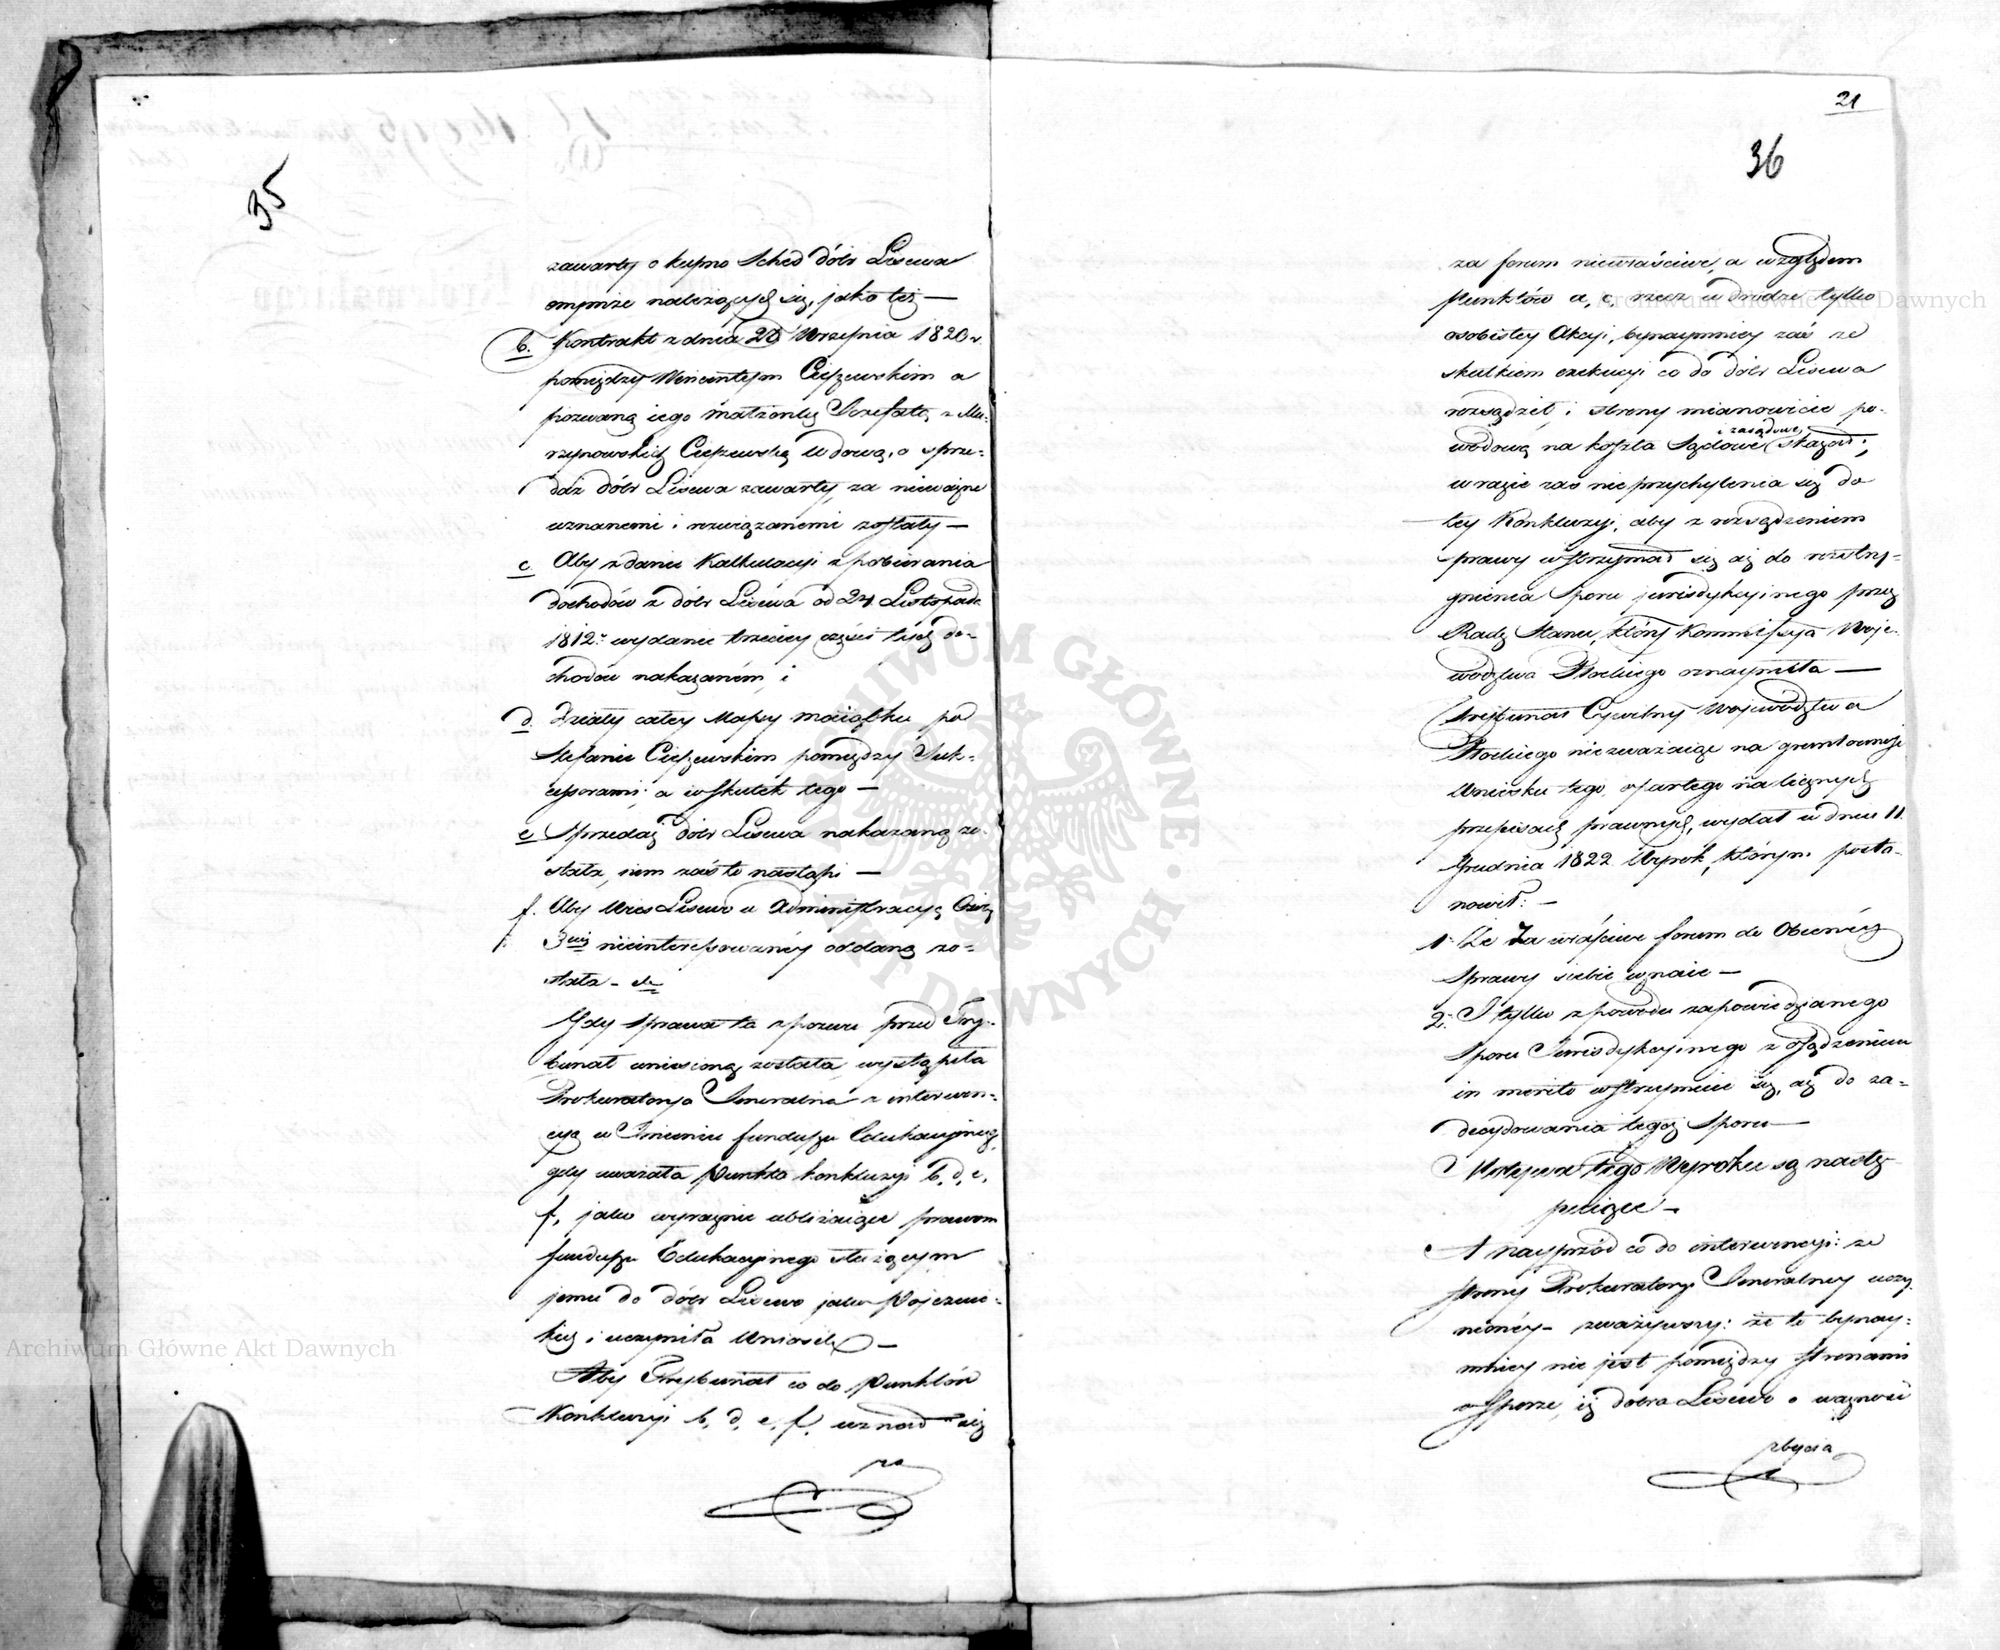 35
zawarty o kupno Sched dóbr Lisewa
onymże należących się, jako też —
b. Kontrakt z dnia 20 Września 1820 r.
pomiędzy Wincentym Ciszewskim a
pozwaną iego małżonką Jozefatą z Mu-
rzynowskich Ciszewską Wdową, o sprze-
daż dóbr Lisewa zawarty, za nieważne
uznanemi i rozwiązanemi zostały —
c Aby zdanie Kalkulacyi z pobierania
dochodów z dóbr Lisewa od 24. Listopada
1812 r. wydanie trzeciey części tych do-
chodów nakazaném, i
d. Działy całey Massy maiątku po
Stefanie Ciszewskim pomiędzy Suk-
cessorami, a w skutek tego —
e Sprzedaż dóbr Lisewa nakazaną zo-
stała, nim zaś to nastąpi —
f. Aby Wieś Lisewo w Administracyą
nieinteressowanéy oddaną zo-
stała —
Gdy Sprawa ta z pozwu przed Try-
bunał wniesioną została, wystąpiła
Prokuratorya Jeneralna z interwen-
cyą w Imieniu funduszu Edukacyjnego,
gdy uważała Punkta konkluzyi b, d, e,
f, jako wyraznie ubliżaiące prawom
funduszu Edukacyjnego służącym
jemu do dóbr Lisewo jako Pojezuic-
kich i uczyniła Wniosek —
Aby Trybunał co do Punktów
Konkluzyi b, d, e, f, uznał się
za
21
36
za forum niewłaściwe, a względem
Punktów a, c, rzecz w drodze tylko
osobistey Akcyi, bynaymniey zaś ze
skutkiem exekucyi co do dóbr Lisewa
rozsądził, i strony mianowicie po-
wodową na koszta Sądowe i zasądowe skazał;
w razie zaś nie przychylenia się do
tey Konkluzyi, aby z rozsądzeniem
sprawy wstrzymał się aż do rozstrzy-
gnienia Sporu jurisdykcyinego przez
Radę Stanu, który Kommissya Woje-
wództwa Płockiego oznaymiła —
Trybunał Cywilny Województwa
Płockiego niezważaiąc na gruntowność
Wniosku tego, opartego na licznych
przepisach prawnych, wydał w dniu 11
Grudnia 1822 Wyrok, którym posta-
nowił: —
1. Że Za właściwe forum do Obecnéy
Sprawy siebie uznaie —
2. I tylko z powodu zapowiedzianego
Sporu Jurisdykcyinego z osądzeniem
in merito wstrzymuie się, aż do za-
decydowania tegoż Sporu —
Motywa tego Wyroku są nastę-
puiące —
A nayprzód co do interwencyi: ze
strony Prokuratoryi Jeneralney uczy-
nionéy — zważywszy: że to bynay-
mniey nie jest pomiędzy stronami
w Sporze, iż dobra Lisewo o ważność
zbycia
Archiwum Główne Akt Dawnych
Archiwum Główne Akt Dawnych
ARCHIWUM GŁÓWNE AKT DAWNYCH